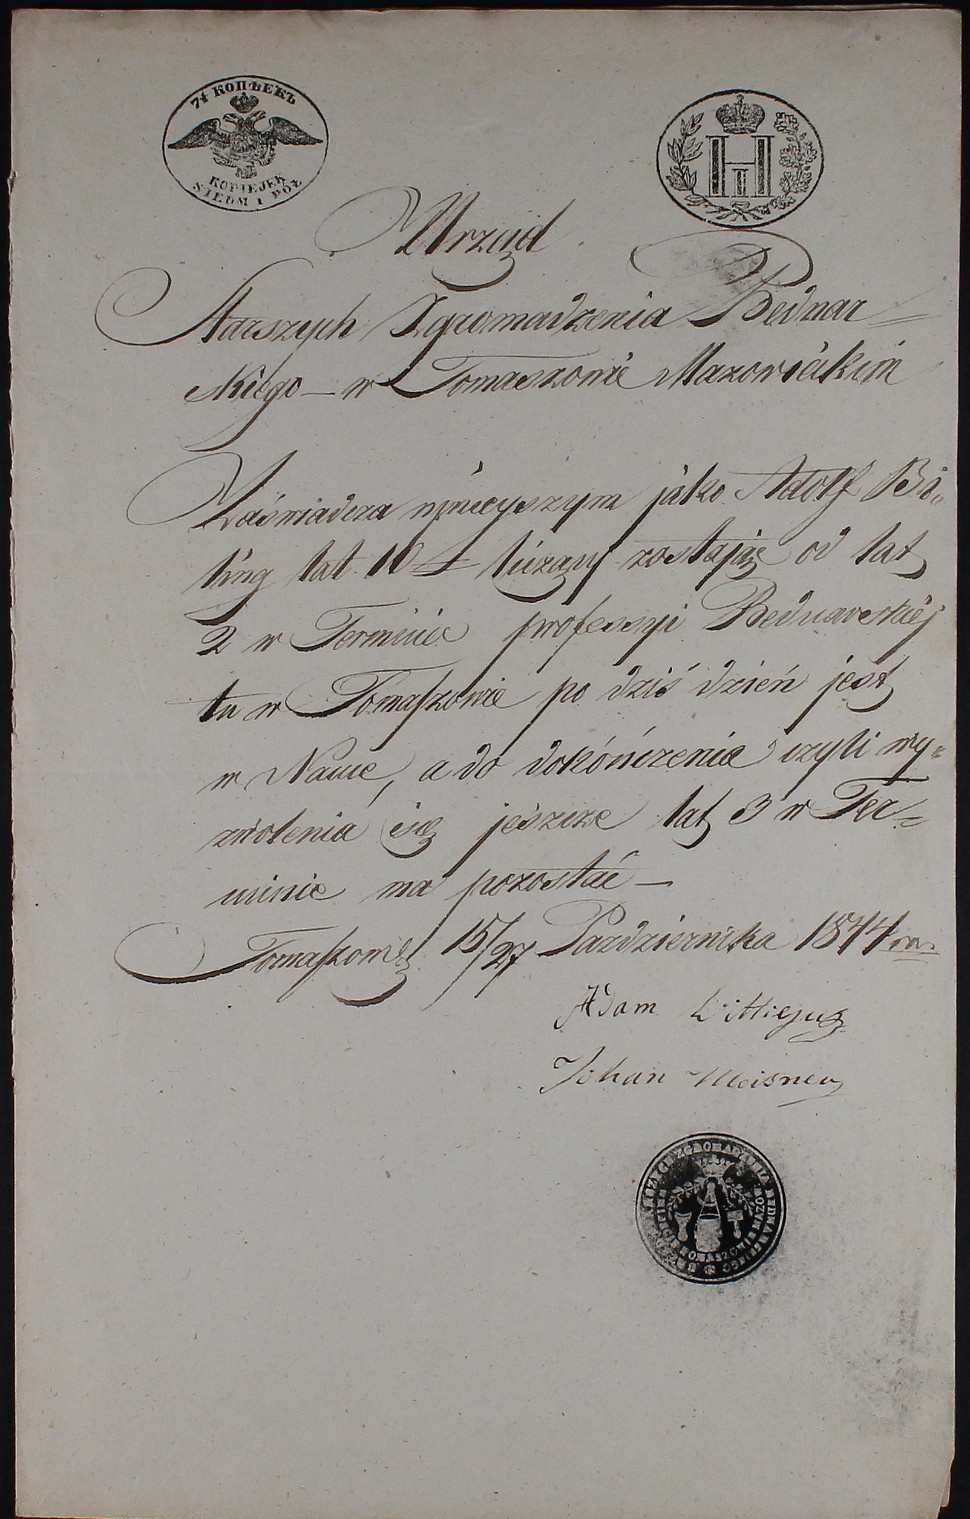 7½ КОПѢЕКЪ
KOPIEJEK
SIEDM I PÓŁ
Urząd
Starszych Zgromadzenia Bednar=
skiego — w Tomaszowie Mazowieckim
Zaświadcza ninieyszym jako Adolf Bi=
ling lat liczący zostając od lat
2 w Terminie professyi Bednarskiéj
tu w Tomaszowie po dziś dzień jest
w Nauce, a do dokończenia czyli wy=
zwolenia się jeszcze lat 3 w Ter=
minie ma pozostać —
Tomaszowie 15/27 Października 1844
Adam
Johan Meisner